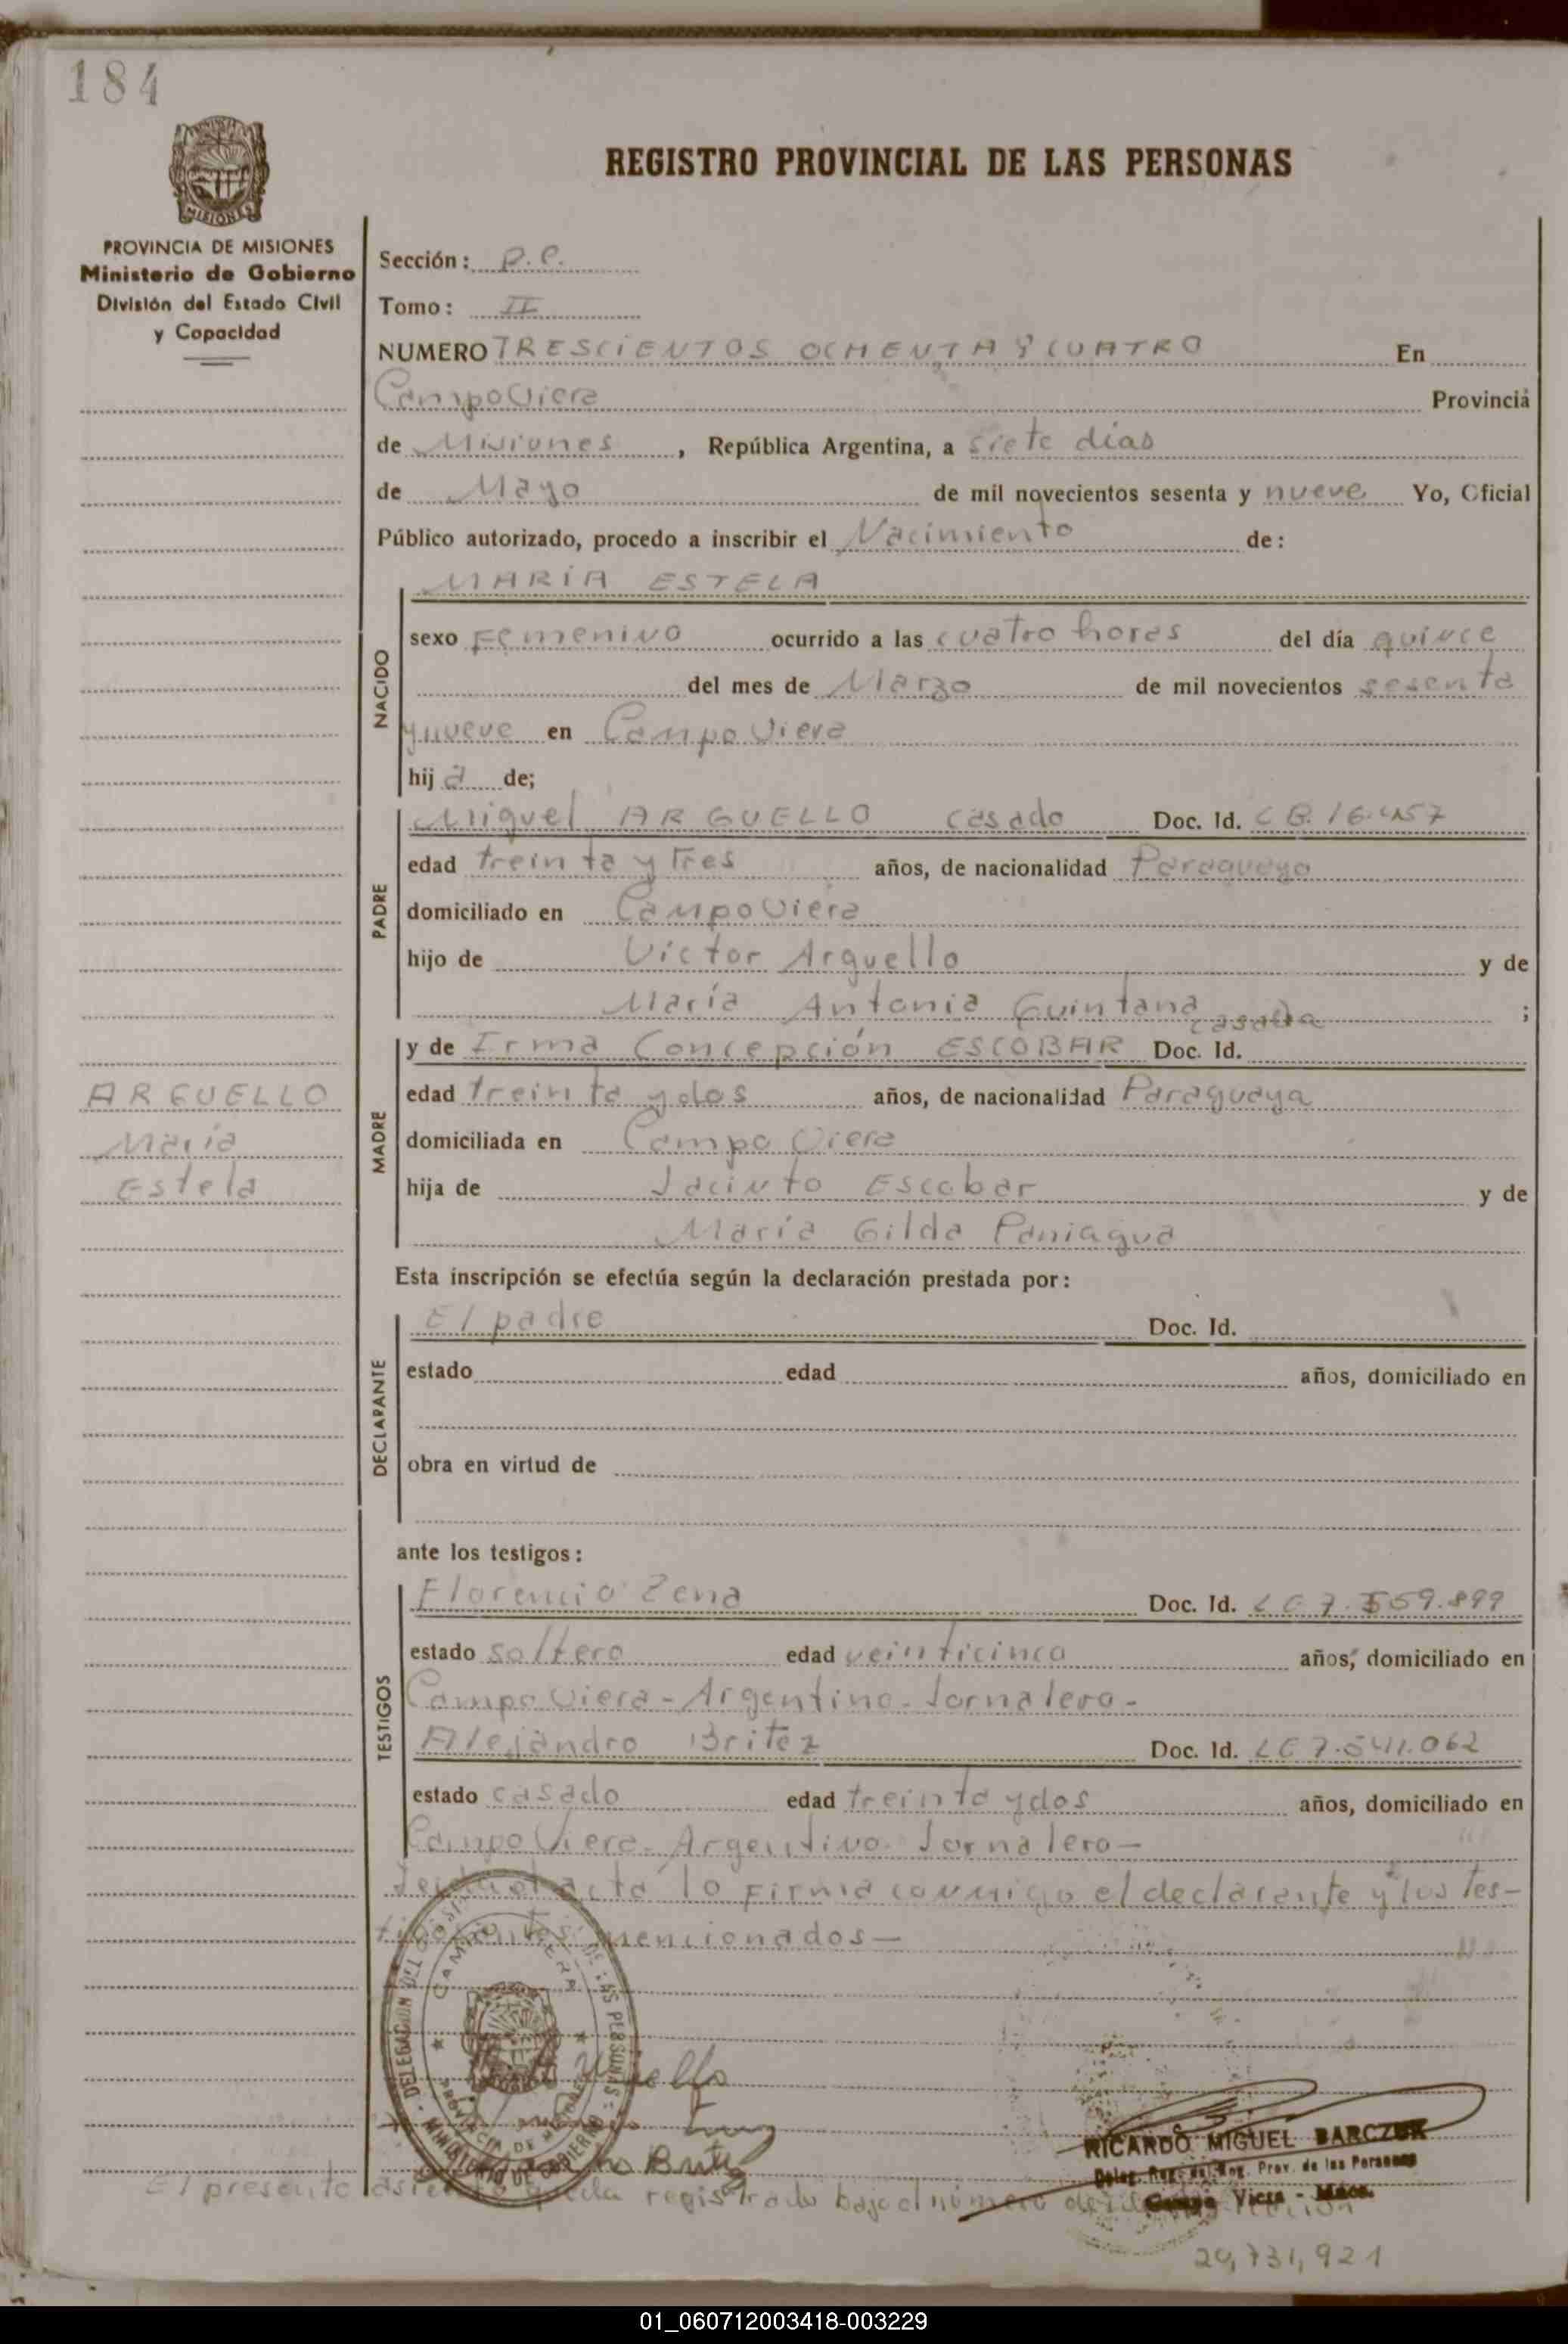 184
REGISTRO PROVINCIAL DE LAS PERSONAS
MISIONES
PROVINCIA DE MISIONES
Ministerio de Gobierno
División del Estado Civil
y Capacidad
Sección: P.C.
Tomo: II
NUMERO TRESCIENTOS OCHENTA Y CUATRO En
Campo Viera Provincia
de Misiones, República Argentina, a siete días
de Mayo de mil novecientos sesenta y nueve Yo, Oficial
Público autorizado, procedo a inscribir el Nacimiento de:
NACIDO
MARÍA ESTELA
sexo Femenino ocurrido a las cuatro horas del día quince
del mes de Marzo de mil novecientos sesenta
y nueve en Campo Viera
hija de;
PADRE
Miguel ARGUELLO casado Doc. Id. 16.457
edad treinta y tres años, de nacionalidad Paraguaya
domiciliado en Campo Viera
hijo de Victor Arguello y de
María Antonia Quintana ;
casada
MADRE
y de Irma Concepción ESCOBAR Doc. Id.
edad treinta y dos años, de nacionalidad Paraguaya
domiciliada en Campo Viera
hija de Jacinto Escobar y de
María Gilda Paniagua
ARGUELLO
María
Estela
Esta inscripción se efectúa según la declaración prestada por:
DECLARANTE
El padre Doc. Id.
estado edad años, domiciliado en
obra en virtud de
ante los testigos:
TESTIGOS
Florencio Zena Doc. Id. LE 7.559.899
estado soltero edad veinticinco años, domiciliado en
Campo Viera - Argentino - Jornalero -
Alejandro Britez Doc. Id. LE 7.541.062
estado casado edad treinta y dos años, domiciliado en
Campo Viera - Argentino - Jornalero -
acta lo firma conmigo el declarante y los tes-
tigos antes mencionados -
DELEGACION DEL REGISTRO DE LAS PERSONAS
CAMPO VIERA
PROVINCIA DE MISIONES
MINISTERIO DE GOBIERNO
RICARDO MIGUEL BARCZUK
Deleg. Reg. del Reg. Prov. de las Personas
Campo Viera - Mnes.
El presente asiento queda registrado bajo el número de
20,731,921
01_060712003418-003229